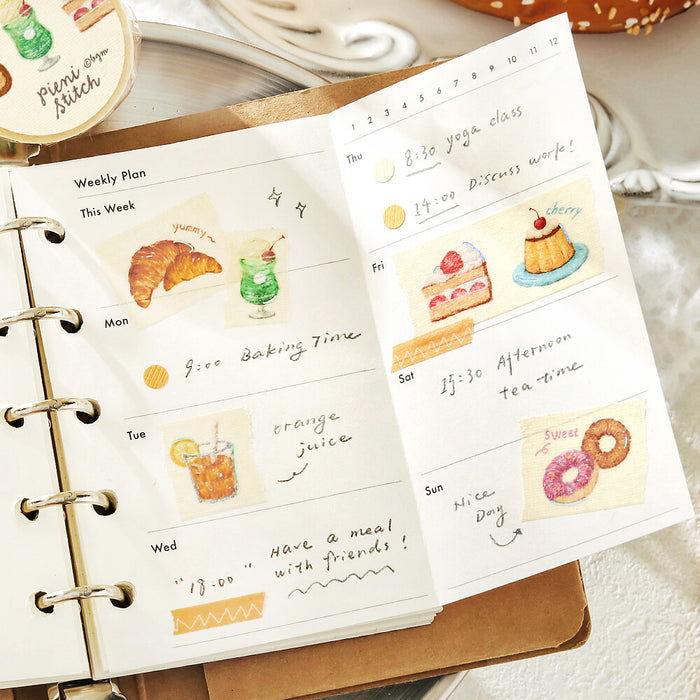 pieni
stitch
©bgm
Weekly Plan
This Week
yummy~
Mon
9:00 Baking Time
Tue
orange
juice
Wed
"18:00" Have a meal
with friends!
1 2 3 4 5 6 7 8 9 10 11 12
Thu
8:30 yoga class
14:00 Discuss work!
Fri
cherry
Sat
15:30 Afternoon
tea-time
Sun
Sweet
Nice
Day